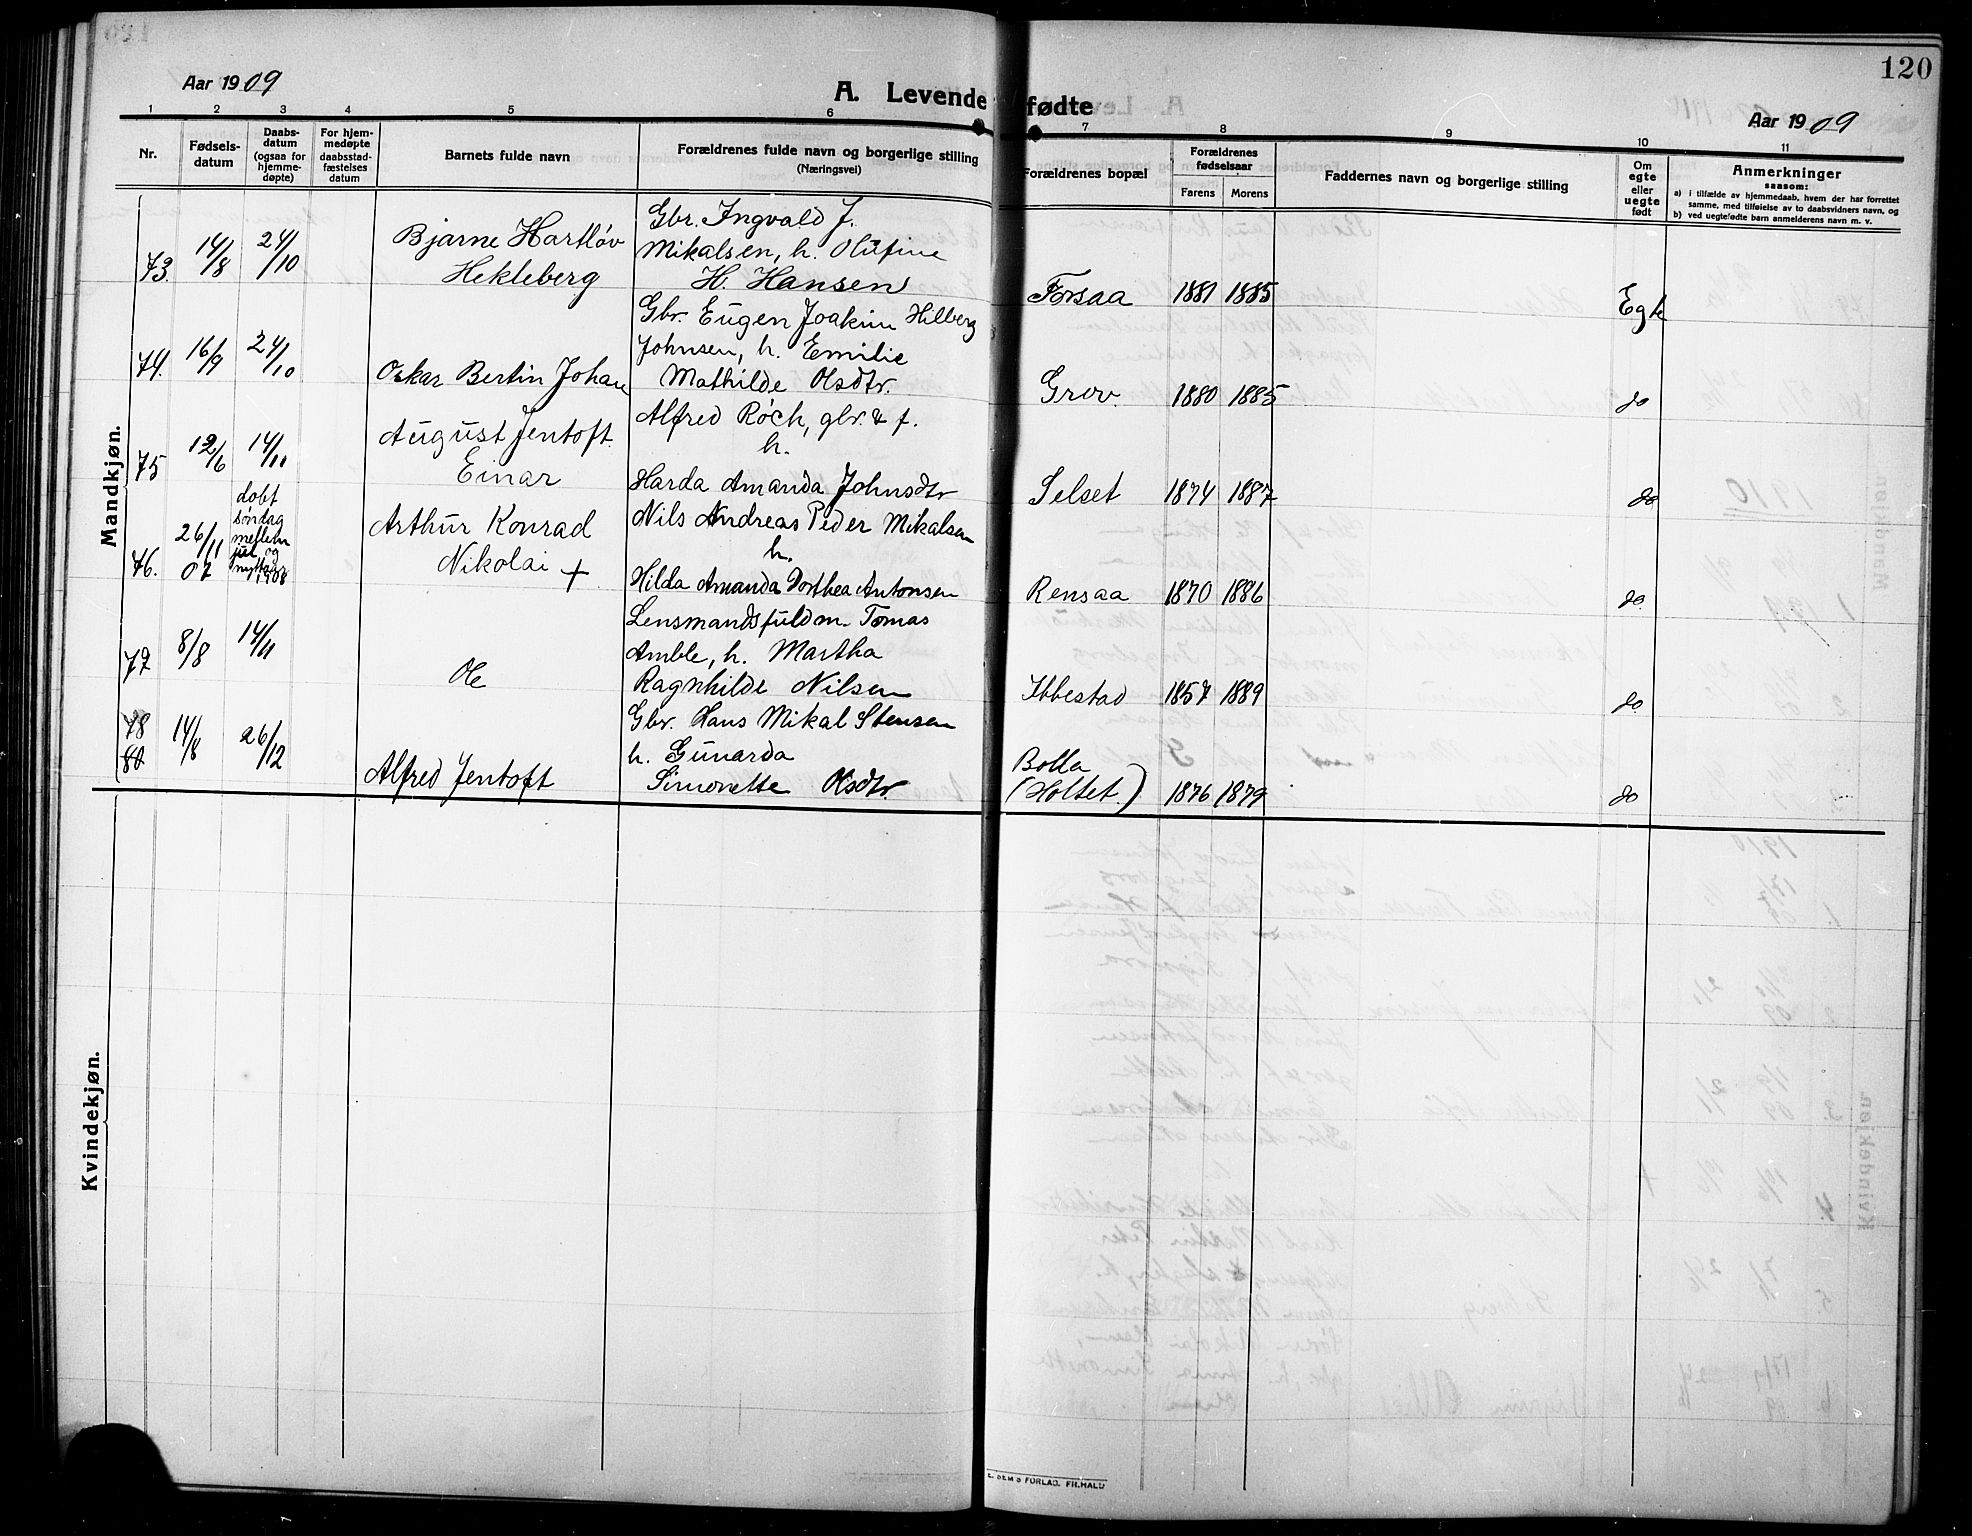 120
Aar 1909
A. Levende fødte
Aar 1909
1 2 3 4 5 6 7 8 9 10 11
Nr.
Fødsels-
datum
Daabs-
datum
(ogsaa for
hjemme-
døpte)
For hjem-
medøpte
daabsstad-
fæstelses
datum
Barnets fulde navn
Forældrenes fulde navn og borgerlige stilling
(Næringsvei)
Forældrenes bopæl
Forældrenes
fødselsaar
Farens Morens
Faddernes navn og borgerlige stilling
Om
egte
eller
uegte
født
Anmerkninger
saasom:
a) i tilfælde av hjemmedaab, hvem der har forrettet
samme, med tilføielse av to daabsvidners navn, og
b) ved uegtefødte barn anmelderens navn m. v.
Mandkjøn.
73. 14/8 24/10
Bjarne Hartløv
Hekleberg
Gbr. Ingvald J.
Mikalsen, h. Olufine
H. Hansen
Forsaa 1881 1885 Egte
74. 16/9 24/10
Oskar Bertin Johan
Gbr. Eugen Joakim Hilberg
Johnsen, h. Emilie
Mathilde Olsdtr.
Grov. 1880 1885 do
75 12/6 14/11
August Jentoft
Einar
Alfred Røch, gbr. & f.
h.
Harda Amanda Johnsdtr
Selset 1874 1887 do
76. 26/11 07
døbt
søndag
mellem
jul og
nyttaar
1908
Arthur Konrad
Nikolai +
Nils Andreas Peder Mikalsen
h.
Hilda Amanda Dorthea Antonsen
Rensaa 1870 1886 do.
77 8/8 14/11
Ole
Lensmandsfuldm. Tomas
Amble, h. Martha
Ragnhilde Nilsen
Ibbestad 1857 1889 do.
78
80 14/8 26/12
Alfred Jentoft
Gbr. Hans Mikal Stensen
h. Gunarda
Simonette Olsdtr.
Bolla
(Holtet.) 1876 1879 do
Kvindekjøn.
SEM'S FORLAG. FR.HALD